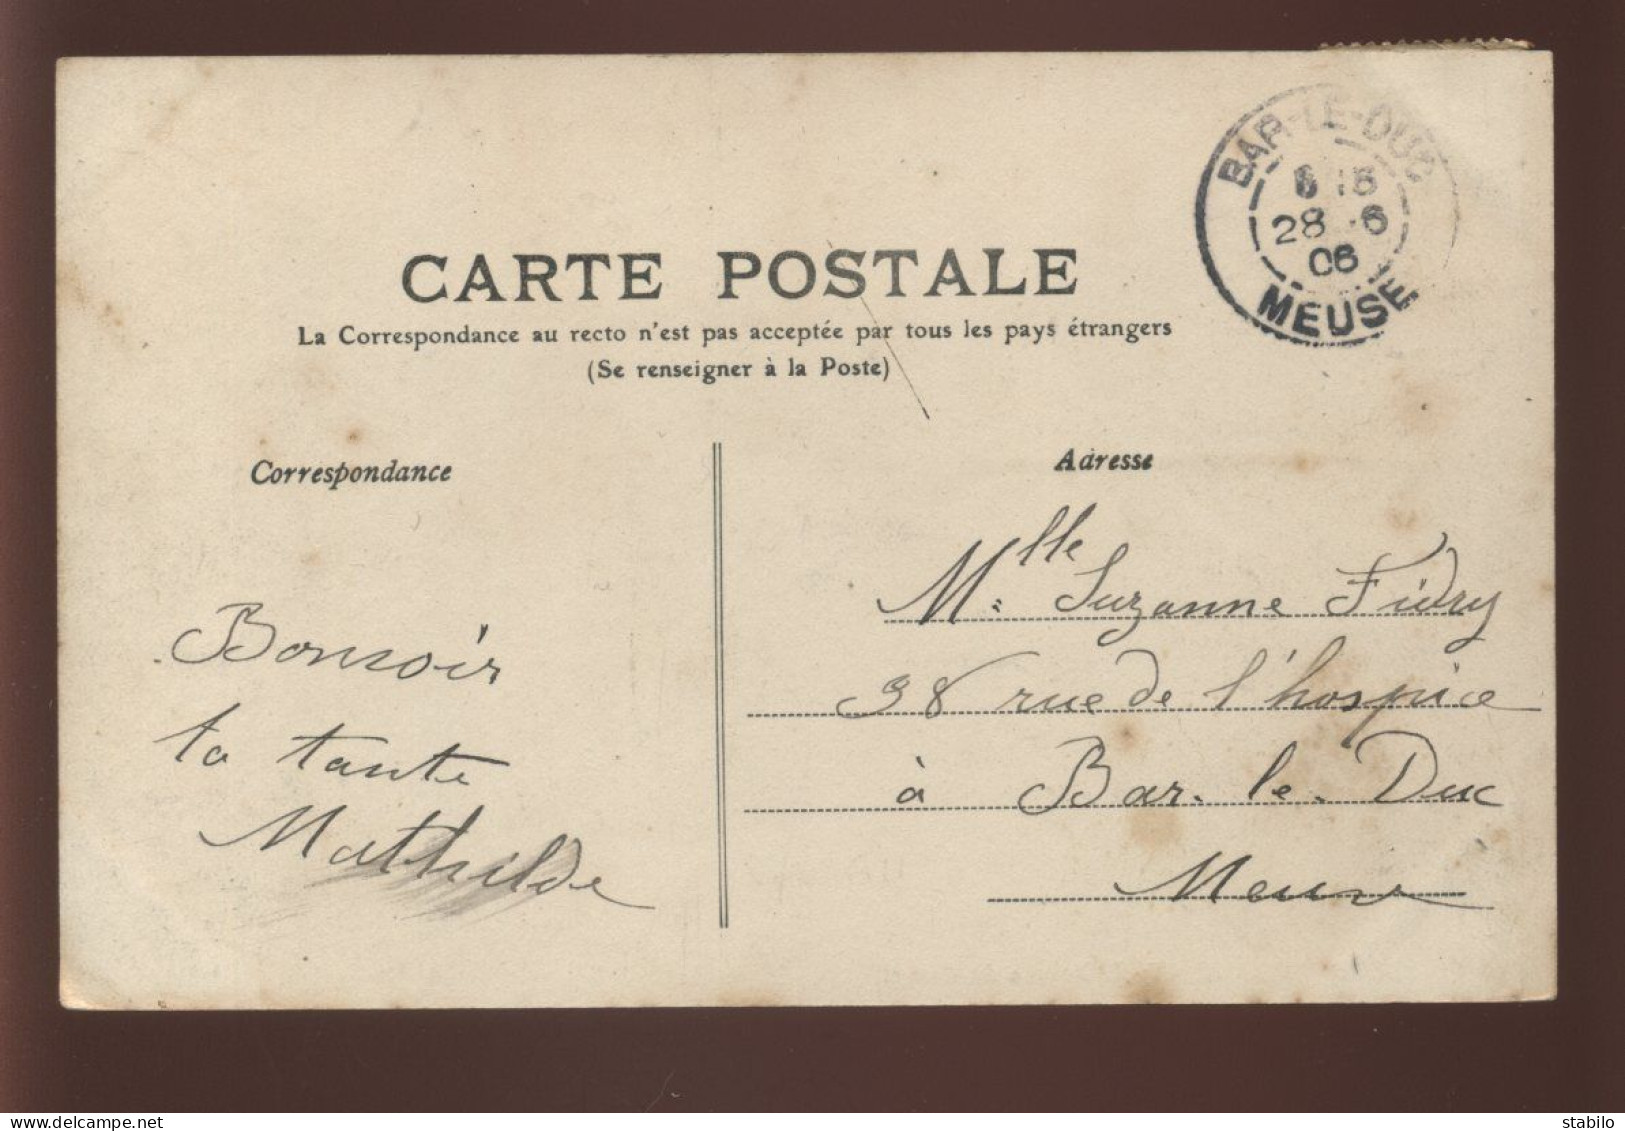 BAR-LE-DUC
28 -6
06
MEUSE
CARTE POSTALE
La Correspondance au recto n'est pas acceptée par tous les pays étrangers
(Se renseigner à la Poste)
Correspondance
Bonsoir
ta tante
Mathilde
Adresse
Mlle Suzanne
38 rue de l'hospice
à Bar-le-Duc
Meuse
delcampe.net
stabilo